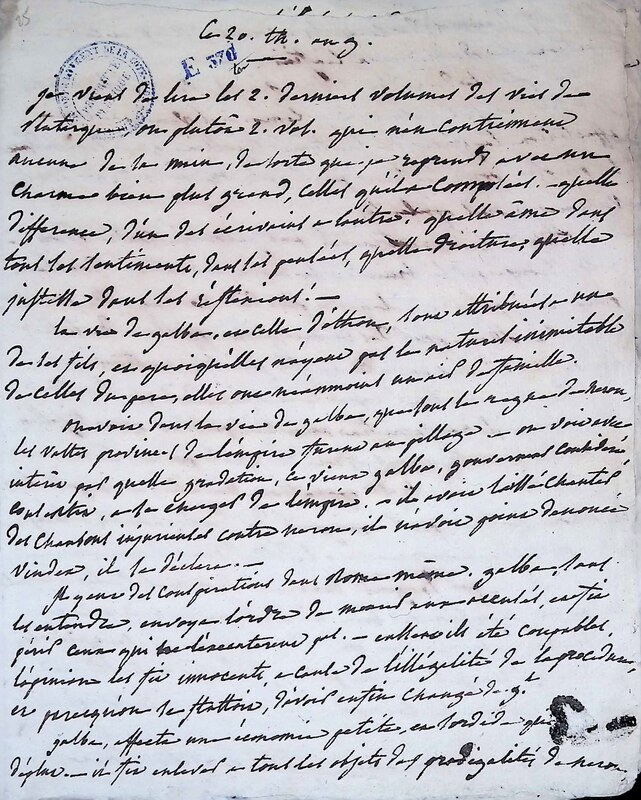 25
Ce 20. th. an 9.
E 37d
je viens de lire les 2. derniers volumes des vies de
Plutarque, ou plutôt 2. vol. qui n'en contiennent
aucune de sa main, de sorte que je reprends avec un
charme bien plus grand, celles qu'il a composées. - quelle
différence, d'un des écrivains a l'autre. quelle âme dans
tous les sentiments, dans les pensées, quelle droiture, quelle
justesse dans les réflexions! -
la vie de galba, et celle d'othon, sont attribuées a un
de ses fils, et quoiqu'elles n'ayent pas le naturel inimitable
de celles du pere, elles ont néanmoins un air de famille.
on voit dans la vie de galba, que sous le regne de neron,
les vastes provinces de l'empire furent au pillage - on voit avec
intérêt par quelle gradation, ce vieux galba, gouverneur considéré
consentit, a se charger de l'empire. - il avoit laissé chanter
des chansons injurieuses contre neron, il n'avoit point dénoncé
vindex, il se déclara. -
il y eut des conspirations dans Rome même. galba, sans
les entendre, envoya l'ordre de mourir aux accusés, et fit
périr ceux qui ne s'exécuterent pas. - eussent ils été coupables,
l'opinion les fit innocents, a cause de l'illégalité de la procédure,
et parcequ'on se flattoit, d'avoir enfin changé de g.t
galba, affecta une économie petite, et sordide qui
déplut. - il fit enlever a tous les objets des prodigalités de neron